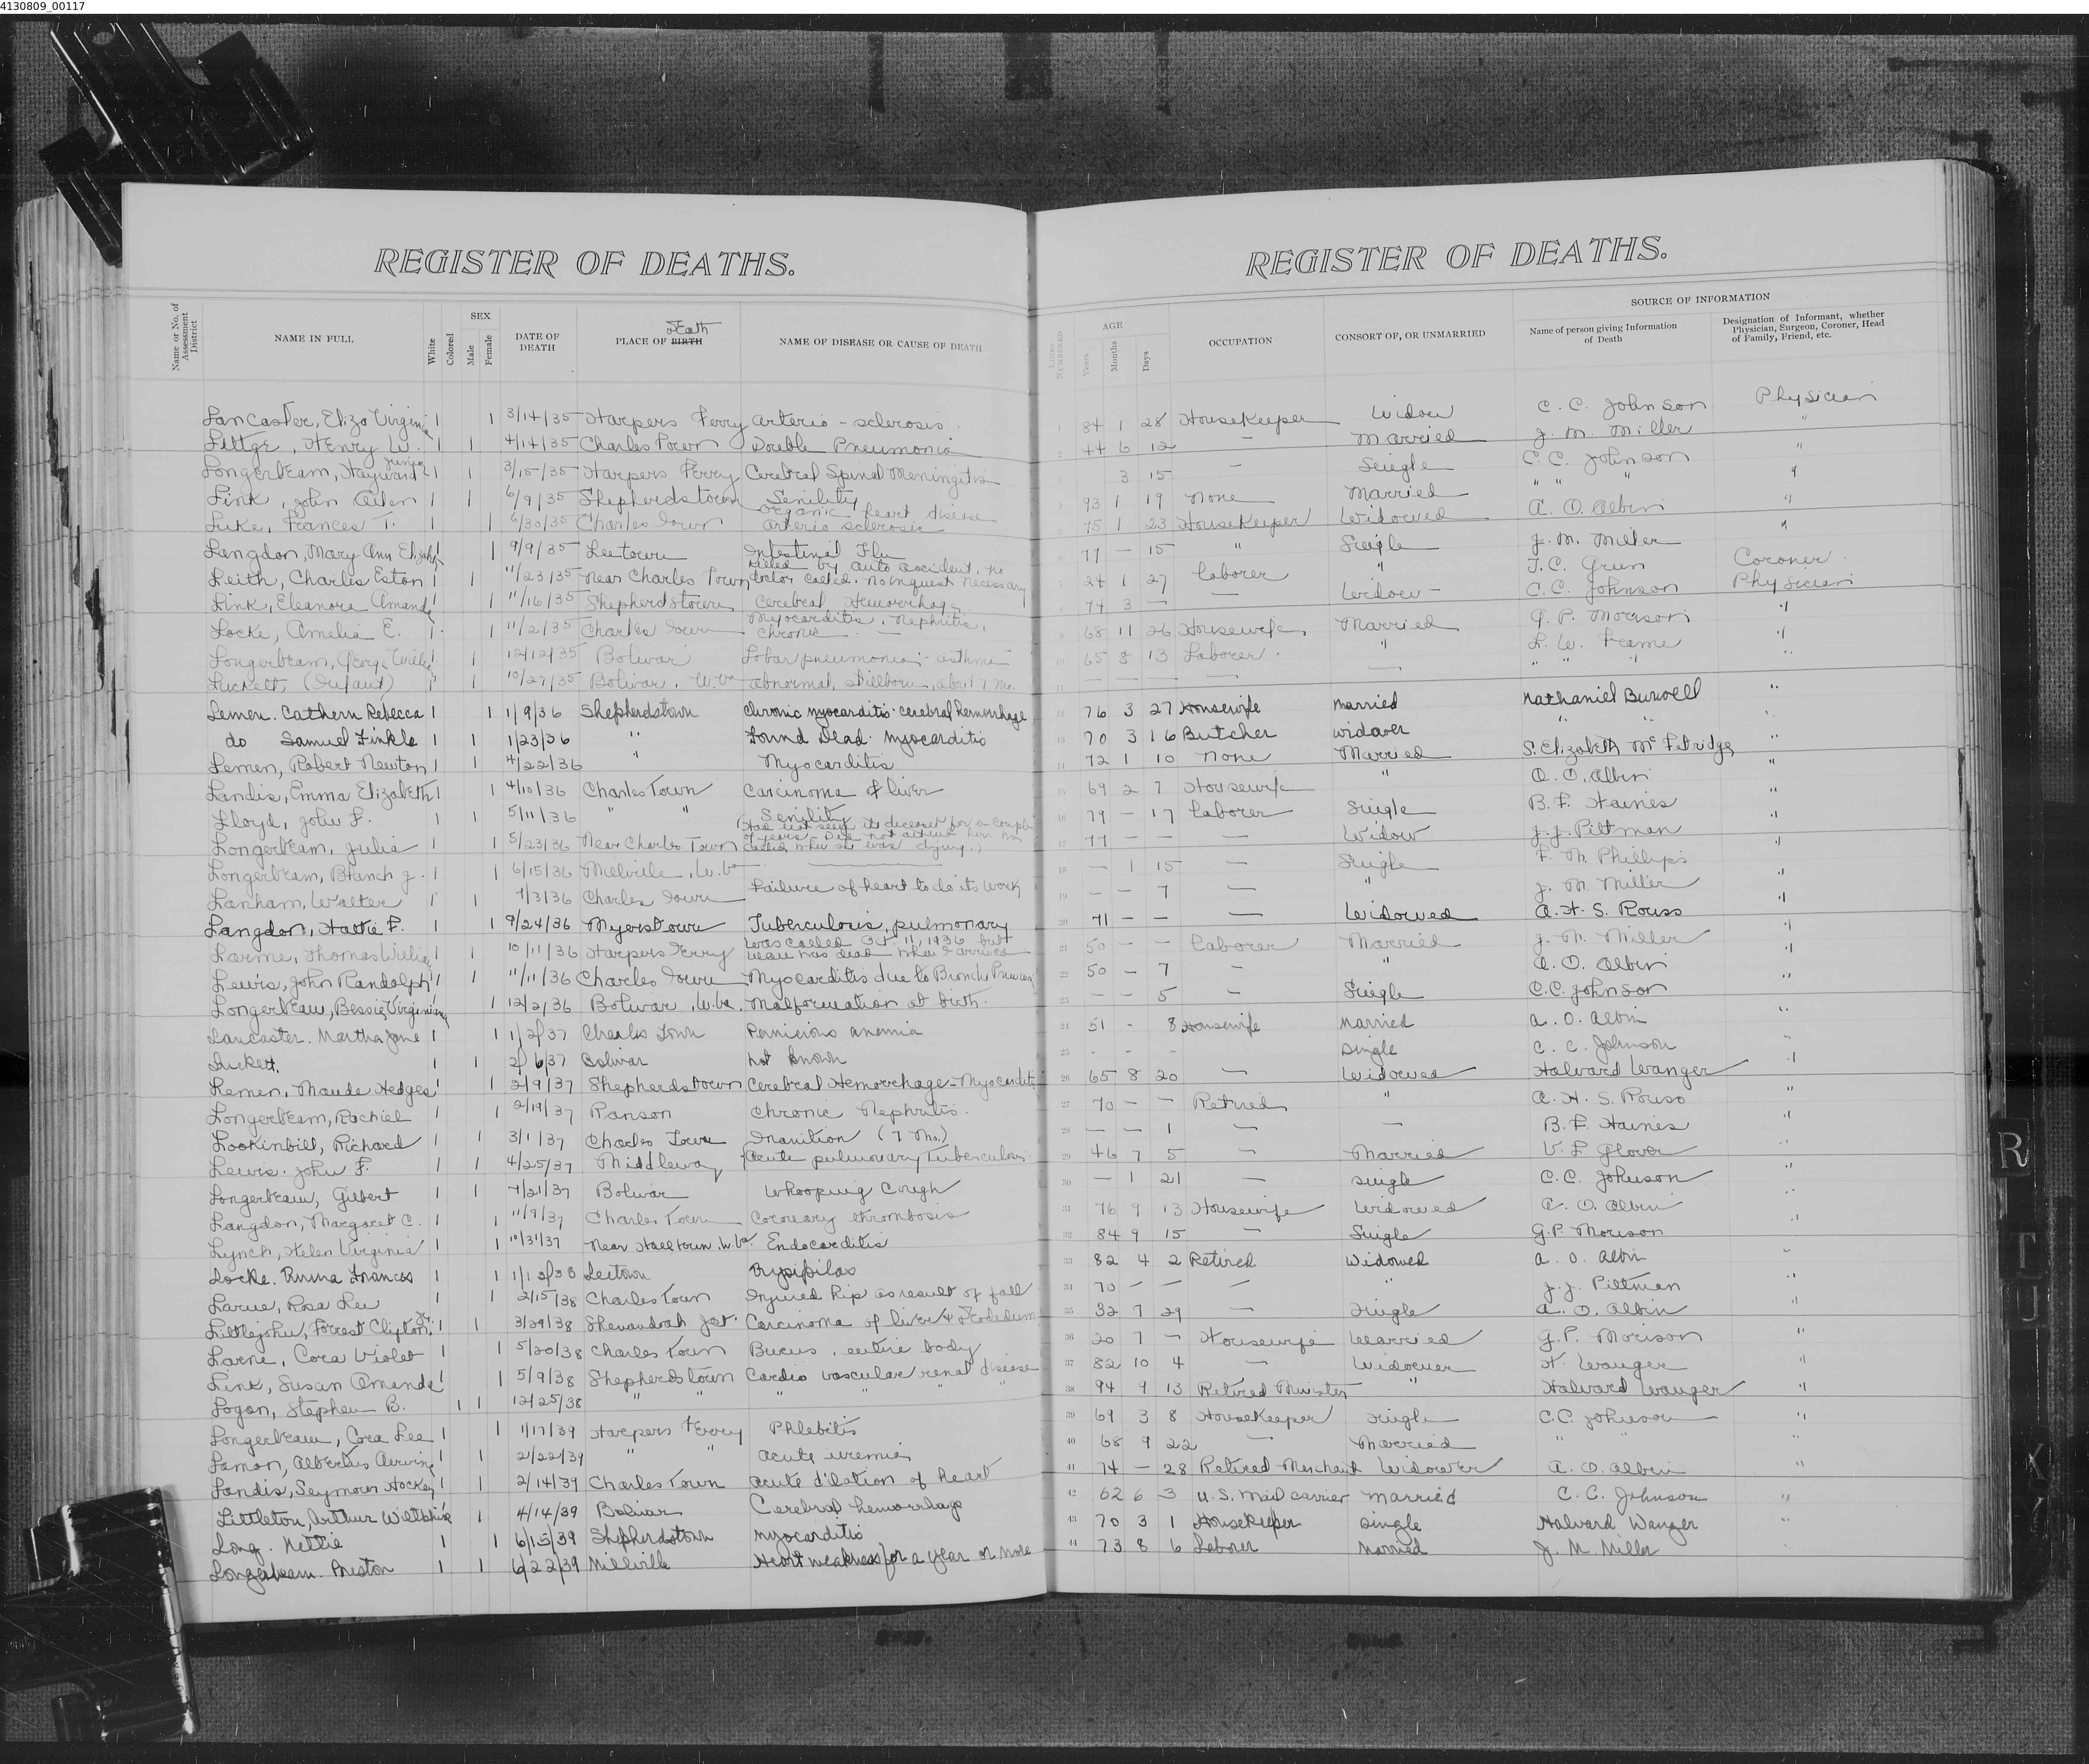 4130809_00117
REGISTER OF DEATHS.
Name or No. of Assessment District
NAME IN FULL
White
Colored
SEX
Male
Female
DATE OF DEATH
Death
PLACE OF BIRTH
NAME OF DISEASE OR CAUSE OF DEATH
Lancaster, Eliza Virginia 1 1 3/14/35 Harpers Ferry arterio - sclerosis.
Littge, Henry W. 1 1 4/14/35 Charles Town Double Pneumonia
Longerbeam, Hayward Junior 1 1 3/15/35 Harpers Ferry Cerebral Spinal Meningitis
Link, John Allen 1 1 6/9/35 Shepherdstown Senility
Luke, Frances T. 1 1 6/30/35 Charles Town organic heart disease arterio sclerosis
Langdon, Mary Ann Elizabeth 1 1 9/9/35 Leetown Intestinal Flu
Leith, Charles Eston 1 1 11/23/35 Near Charles Town Killed by auto accident. no doctor called. No inquest necessary
Link, Eleanora Amanda 1 1 11/16/35 Shepherdstown Cerebral Hemorrhage
Locke, Amelia E. 1 1 11/2/35 Charles Town Myocarditis, Nephritis, chronic. —
Longerbeam, George Willie 1 1 12/12/35 Bolivar Lobar pneumonia - asthma
Luckett, (Infant) 1 1 10/27/35 Bolivar, W.Va abnormal, stillborn, about 7 mo.
Lemen. Cathern Rebecca 1 1 1/9/36 Shepherdstown Chronic myocarditis - cerebral hemorrhage
do Samuel Finkle 1 1 1/23/36 " Found Dead. myocarditis
Lemen, Robert Newton 1 1 4/22/36 " Myocarditis
Landis, Emma Elizabeth 1 1 4/10/36 Charles Town Carcinoma of liver
Lloyd, John F. 1 1 5/11/36 " " Senility
Longerbeam, Julia 1 1 5/23/36 Near Charles Town (Had not seen its deceased for a couple of years - Did not attend her. Was called when she was dying.)
Longerbeam, Blanch J. 1 1 6/15/36 Millville, W.Va —
Lanham, Walter 1 1 7/3/36 Charles Town Failure of heart to do its work
Langdon, Hattie F. 1 1 9/24/36 Myerstown Tuberculosis, pulmonary
Larme, Thomas William 1 1 10/11/36 Harpers Ferry was called Oct. 11, 1936 but man was dead when I arrived
Lewis, John Randolph 1 1 11/11/36 Charles Town Myocarditis due to Broncho Pneum
Longerbeam, Bessie Virginia 1 1 12/2/36 Bolivar, W.Va. Malformation at birth.
Lancaster. Martha Jane 1 1 1/2/37 Charles Town Pernicious anemia
Luckett. 1 1 2/6/37 Bolivar not known
Lemen, Maude Hedges 1 1 2/9/37 Shepherdstown Cerebral Hemorrhage - Myocarditis
Longerbeam, Rachiel 1 1 2/19/37 Ranson Chronic Nephritis.
Lookinbill, Richard 1 1 3/1/37 Charles Town Inanition (7 Mo.)
Lewis. John F. 1 1 4/25/37 Middleway Acute pulmonary Tuberculosis
Longerbeam, Gilbert 1 1 7/21/37 Bolivar Whooping Cough
Langdon, Margaret C. 1 1 11/9/37 Charles Town Coronary thrombosis
Lynch, Helen Virginia 1 1 10/31/37 Near Halltown, W.Va. Endocarditis
Locke. Emma Frances 1 1 Leetown Erysipilas
Larue, Rosa Lee 1 1 2/15/38 Charles Town Injured hip as result of fall
Littlejohn, Forrest Clifton Jr. 1 1 3/29/38 Shenandoah Jct. Carcinoma of liver &
Larne, Cora Violet 1 1 5/20/38 Charles Town Burns, entire body
Link, Susan Amanda 1 1 5/9/38 Shepherdstown Cardio vascular renal disease
Logan, Stephen B. 1 1 12/25/38 " " " " "
Longerbeam, Cora Lee 1 1 1/17/39 Harpers Ferry Phlebitis
Lamon, Albertus 1 1 2/22/39 " " acute uremia
Landis, Seymour Hockey 1 1 2/14/39 Charles Town acute dilation of heart
Littleton, Arthur Wiltshire 1 4/14/39 Bolivar Cerebral hemorrhage
Long. Nettie 1 1 6/15/39 Shepherdstown Myocarditis
Longerbeam. Preston 1 1 6/22/39 Millville Heart weakness for a year or more
REGISTER OF DEATHS.
LINES NUMBERED
AGE
Years
Months
Days
OCCUPATION
CONSORT OF, OR UNMARRIED
SOURCE OF INFORMATION
Name of person giving Information of Death
Designation of Informant, whether Physician, Surgeon, Coroner, Head of Family, Friend, etc.
1 84 1 28 Housekeeper Widow C. C. Johnson Physician
2 44 6 12 — Married J. M. Miller "
3 3 15 — Single C. C. Johnson "
4 93 1 19 None Married " " " "
5 75 1 23 Housekeeper Widowed A. O. Albin "
6 77 — 15 " Single J. M. Miller "
7 24 1 27 Laborer " T. C. Green Coroner
8 74 3 — — Widow - C. C. Johnson Physician
9 68 11 26 Housewife Married G. P. Morison "
10 65 8 13 Laborer. " L. W. Frame "
11 — — — — — " " " "
12 76 3 27 Housewife Married Nathaniel Burwell "
13 70 3 16 Butcher widower " " "
14 72 1 10 None Married S. Elizabeth McFetridge "
15 69 2 7 Housewife " A. O. Albin "
16 79 — 17 Laborer Single B. F. Haines "
17 77 — — — Widow J. J. Pittman "
18 — 1 15 — Single F. M. Phillips "
19 — — 7 — " J. M. Miller "
20 71 — — — Widowed A. H. S. Rouss "
21 50 — — Laborer Married J. M. Miller "
22 50 — 7 — " A. O. Albin "
23 — — 5 — Single C. C. Johnson "
24 51 - 8 Housewife Married A. O. Albin "
25 - - - single C. C. Johnson "
26 65 8 20 — Widowed Halvard Wanger "
27 70 — — Retired " A. H. S. Rouss "
28 — — 1 — — B. F. Haines "
29 46 7 5 — Married V. L. Glover "
30 — 1 21 — single C. C. Johnson "
31 76 9 13 Housewife Widowed A. O. Albin "
32 84 9 15 — Single G. P. Morison "
33 82 4 2 Retired Widowed A. O. Albin "
34 70 — — — " J. J. Pittman "
35 32 7 29 — single A. O. Albin "
36 20 7 — Housewife Married G. P. Morison "
37 82 10 4 — Widower H. Wanger "
38 94 9 13 Retired Minister " Halvard Wanger "
39 69 3 8 Housekeeper single C. C. Johnson "
40 68 9 22 — Married " " "
41 74 — 28 Retired Merchant Widower A. O. Albin "
42 62 6 3 U.S. Mail carrier married C. C. Johnson "
43 70 3 1 Housekeeper single Halvard Wanger "
44 73 8 6 Laborer Married J. M. Miller